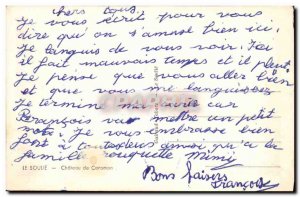 chers tous,
Je vous écrit pour vous
dire qu'on s'amuse bien ici,
Je languis de vous voir. Ici
il fait mauvais temps et il pleut.
Je pense que vous aller bien
et que vous me languissez
Je termine ma car
François va mettre un petit
mots. Je vous embrasse bien
fort à toutes deux ainsi qu'à la
famille rouquette Mimi
LE SOULIE - Château de Caraman
Bons baisers
François